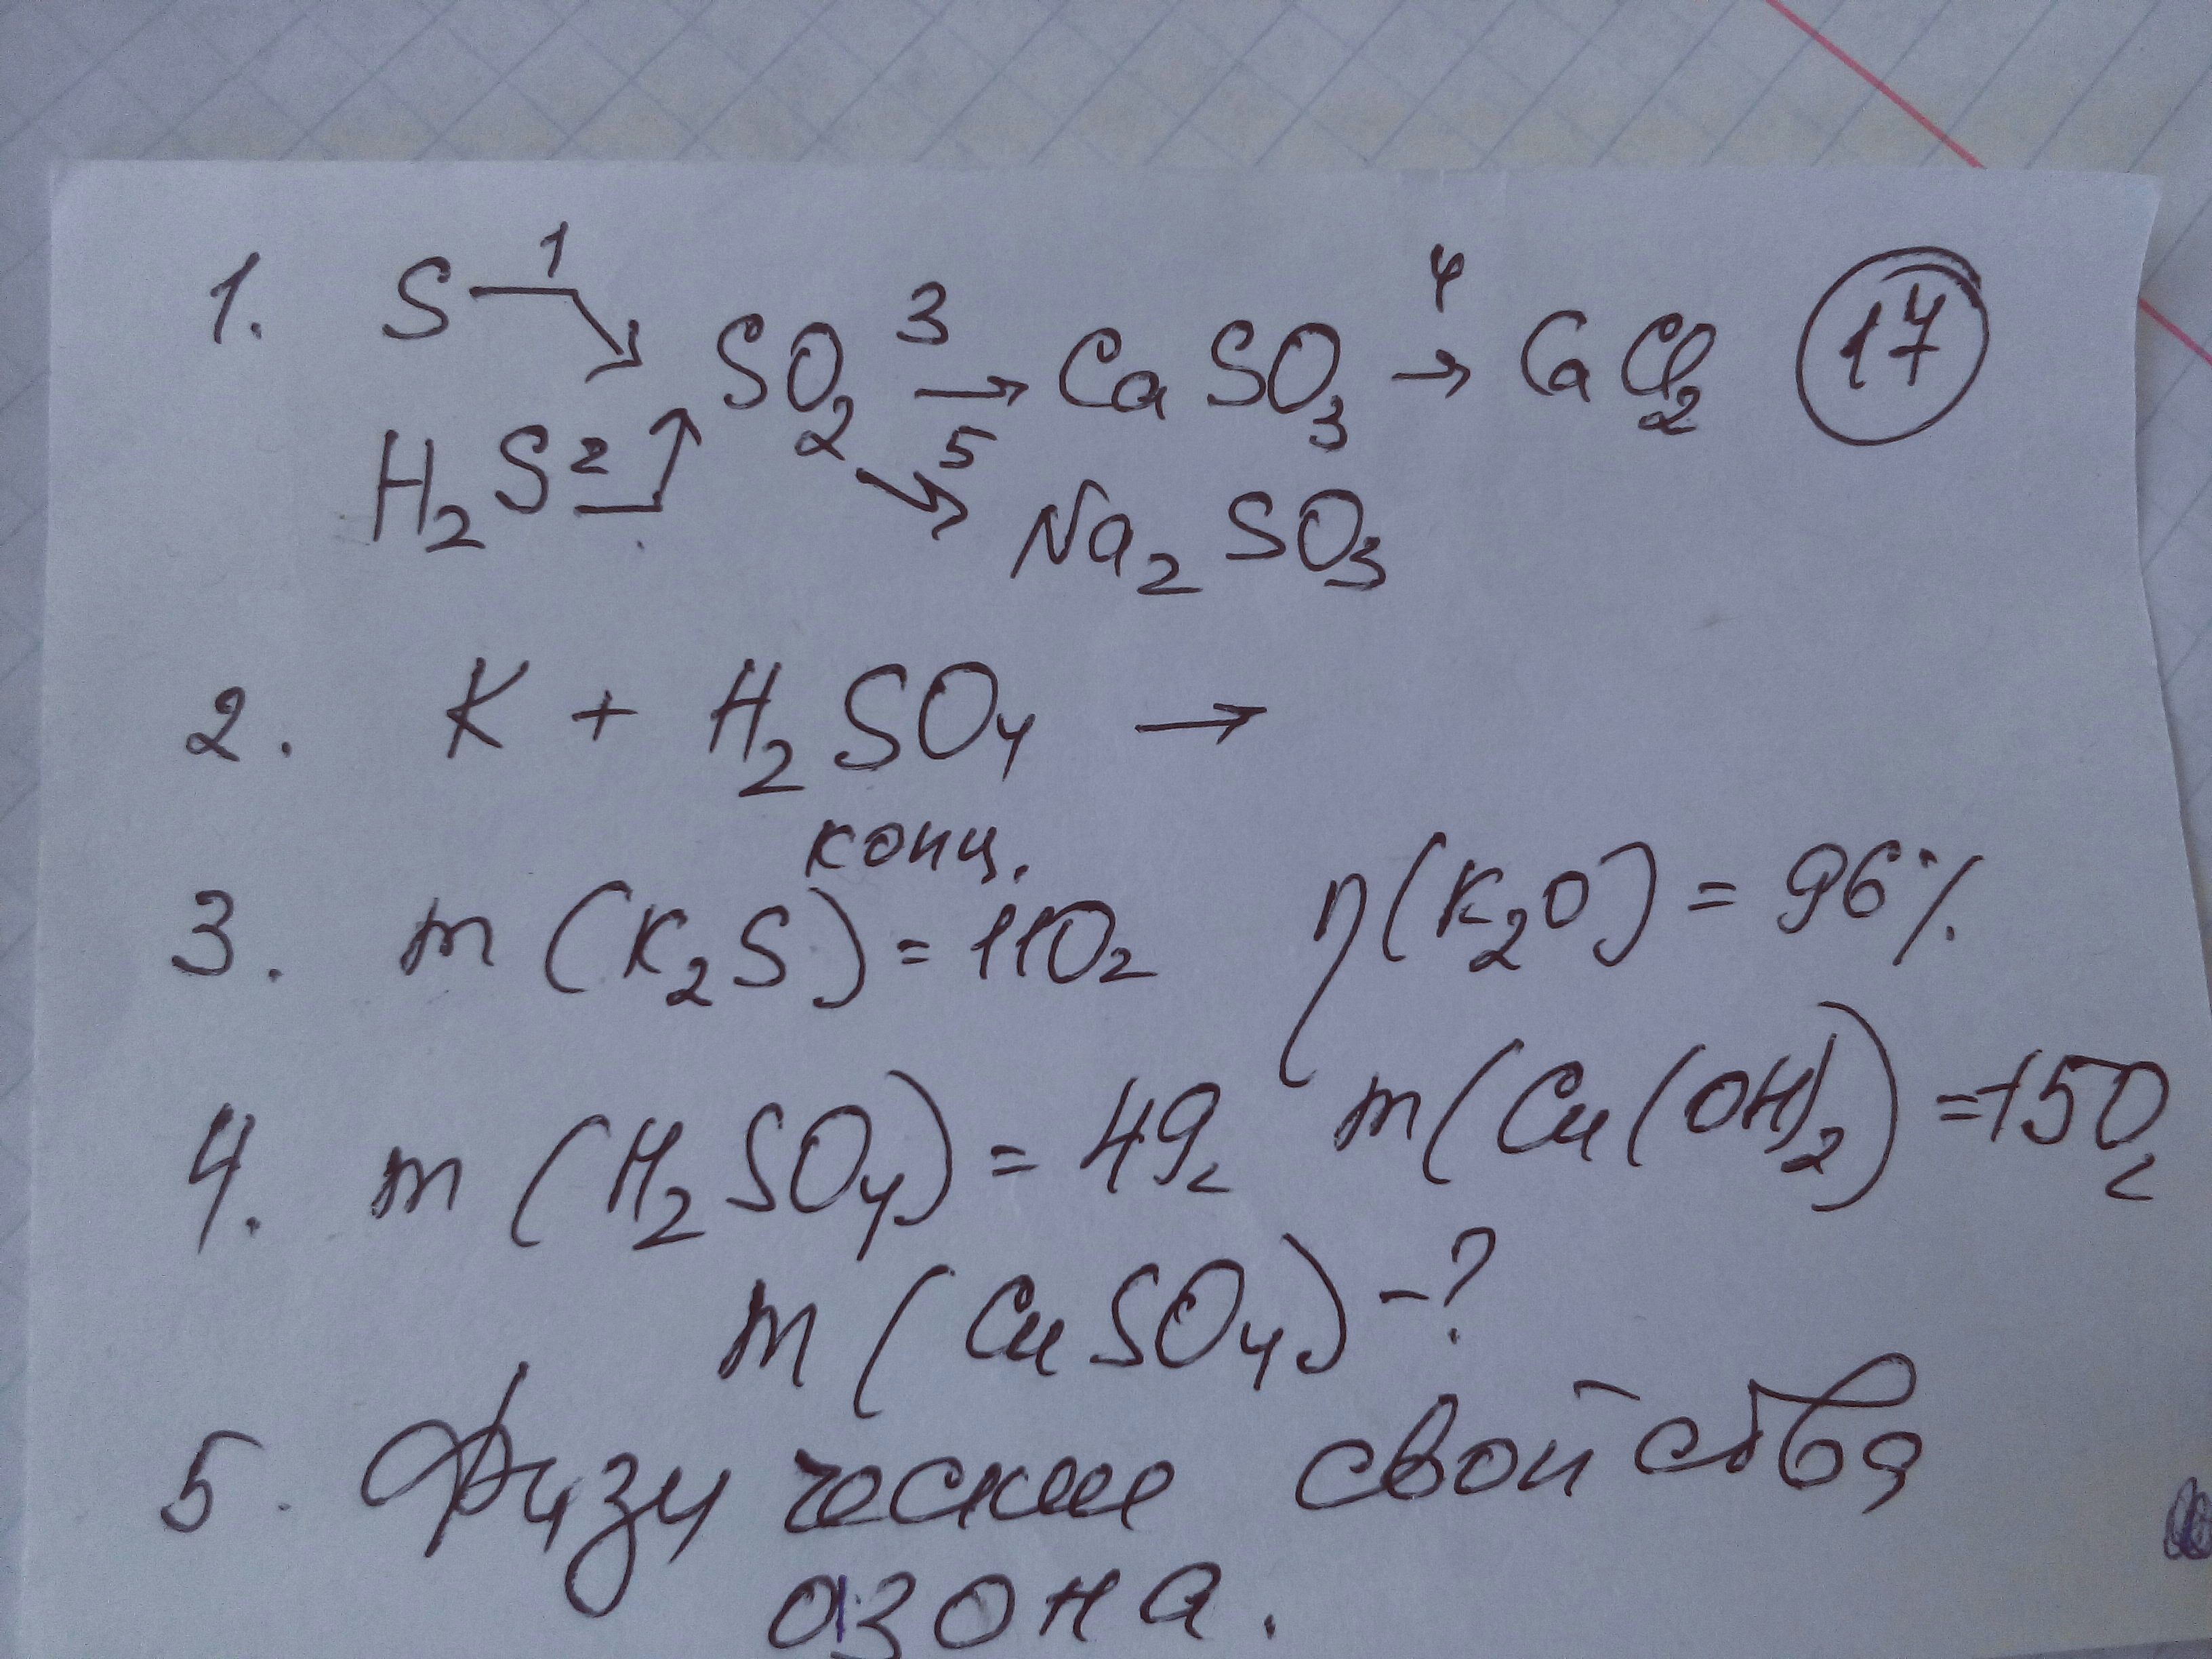 1. S 1→ SO₂ 3→ CaSO₃ 4→ CaCl₂ 17
H₂S 2→ 5→ Na₂SO₃
2. K + H₂SO₄ →
конц.
3. m(K₂S) = 110г η(K₂O) = 96%
4. m(H₂SO₄) = 49г m(Cu(OH)₂) = 150г
m(CuSO₄) - ?
5. Физические свойства
озона.